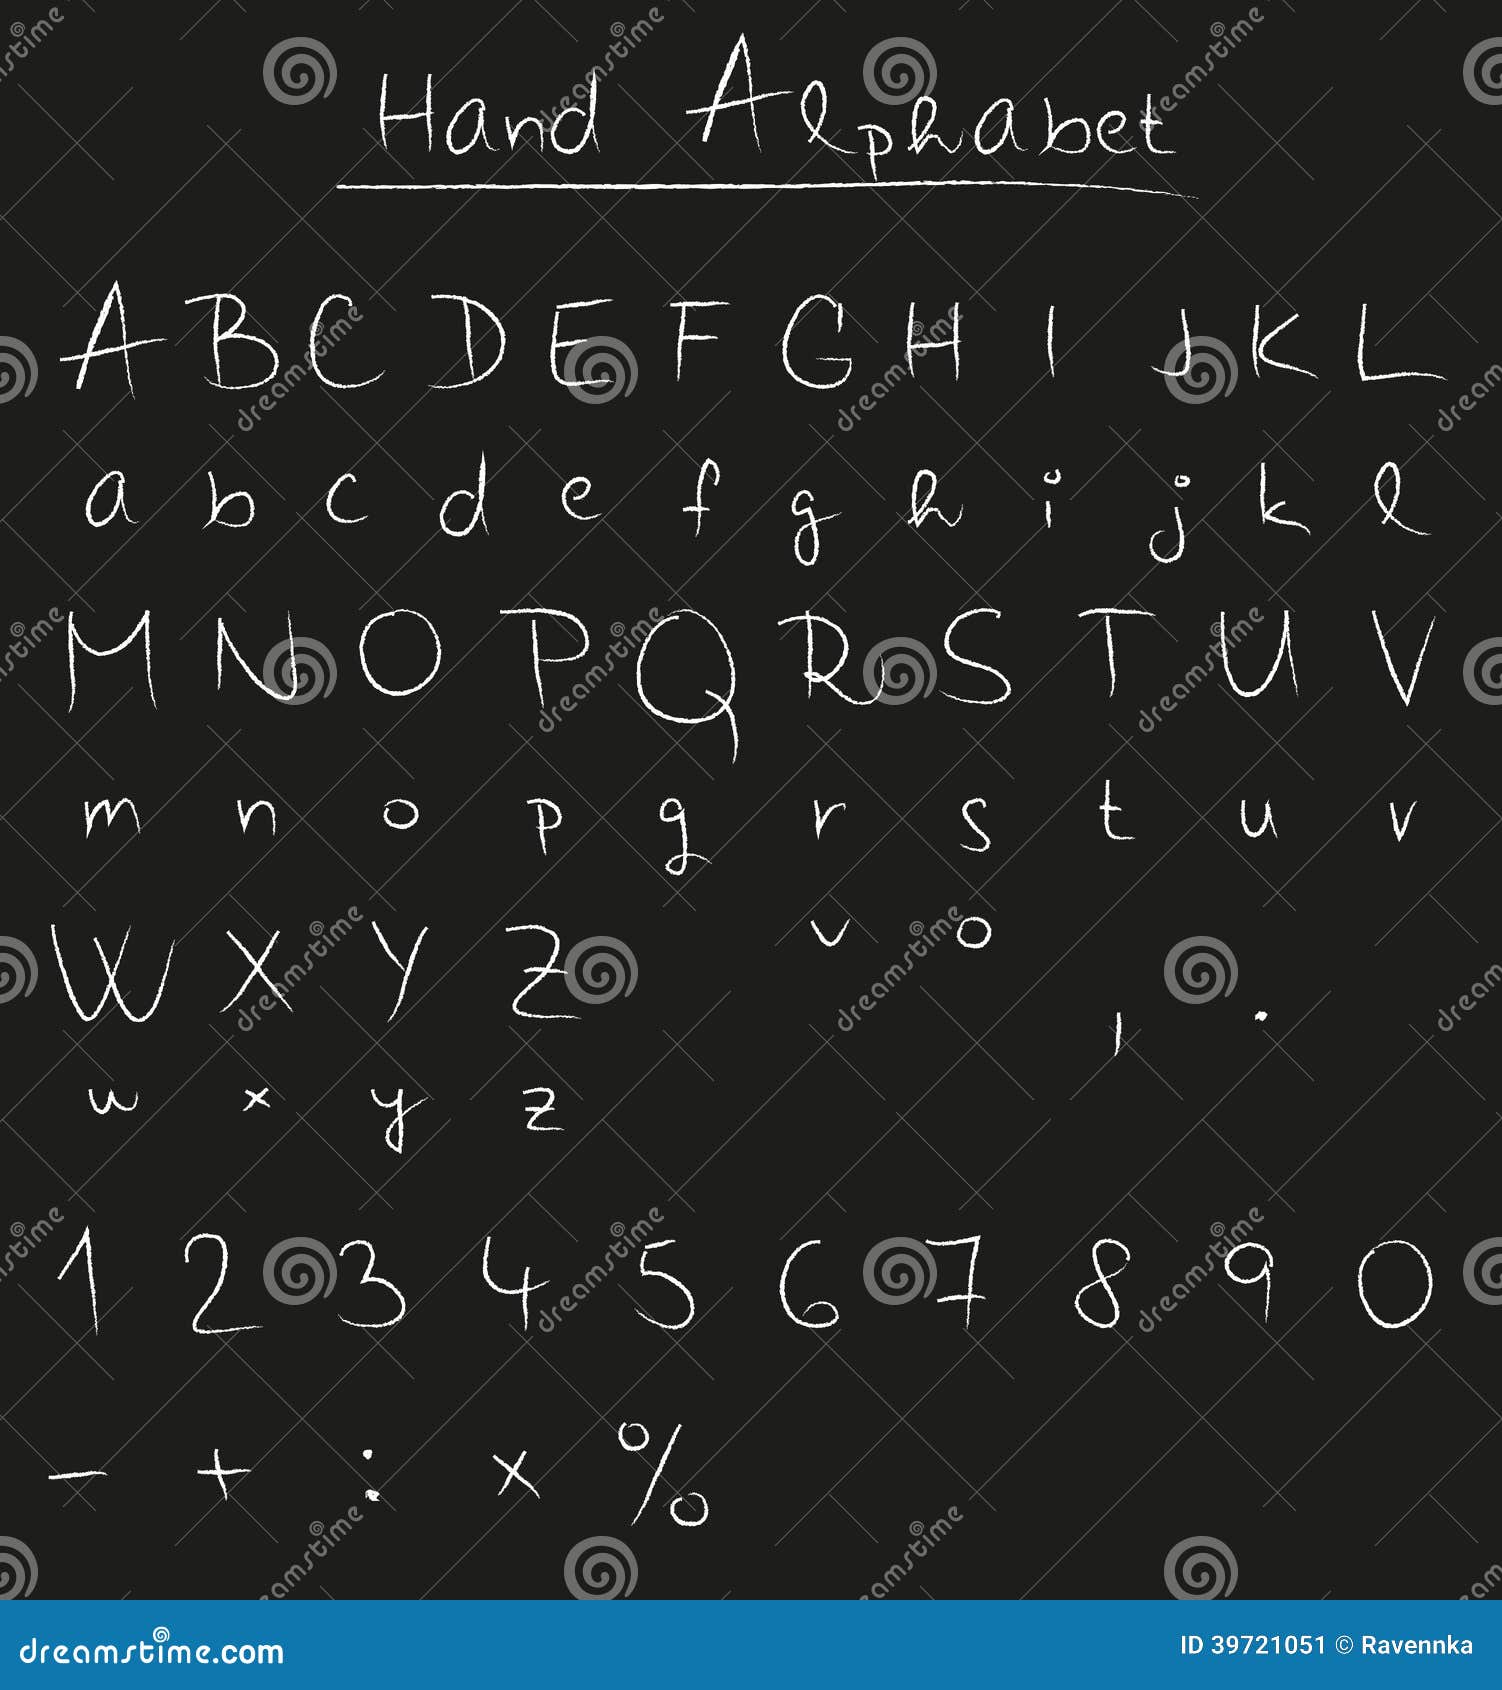 Hand Alphabet
A B C D E F G H I J K L
a b c d e f g h i j k l
M N O P Q R S T U V
m n o p q r s t u v
W X Y Z ˇ ° , .
w x y z
1 2 3 4 5 6 7 8 9 0
- + : × %
dreamstime.com ID 39721051 © Ravennka